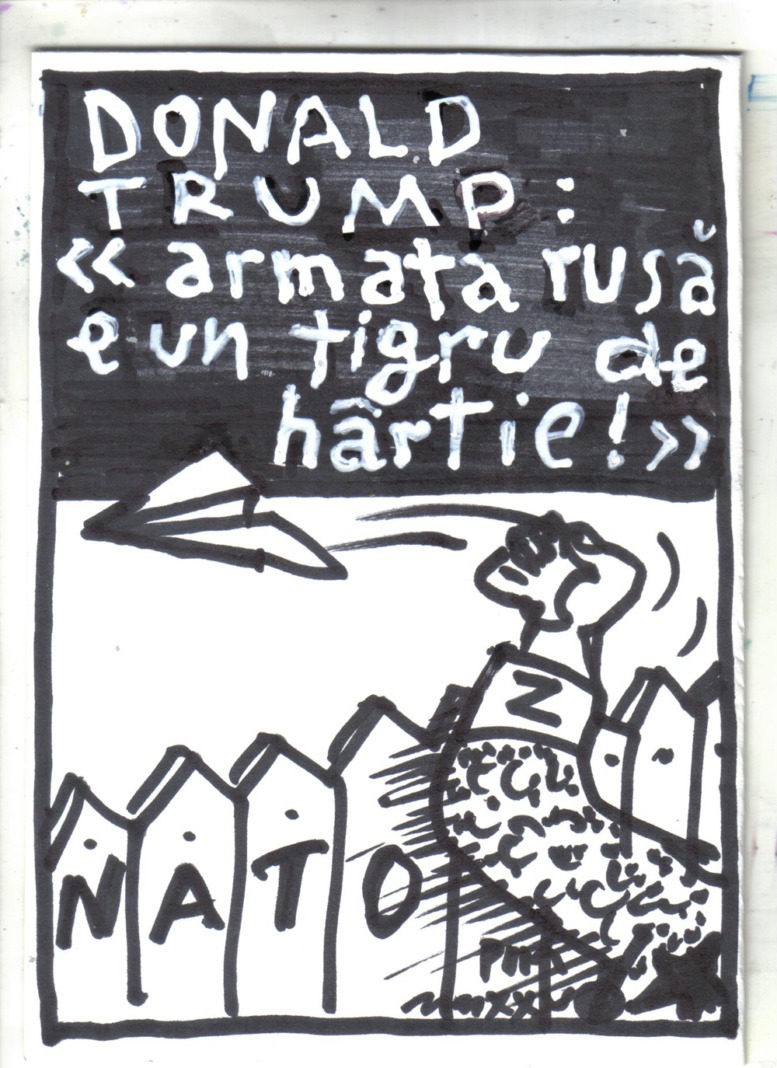 DONALD
TRUMP:
«armata rusă
e un tigru de
hârtie!»
Z
NATO